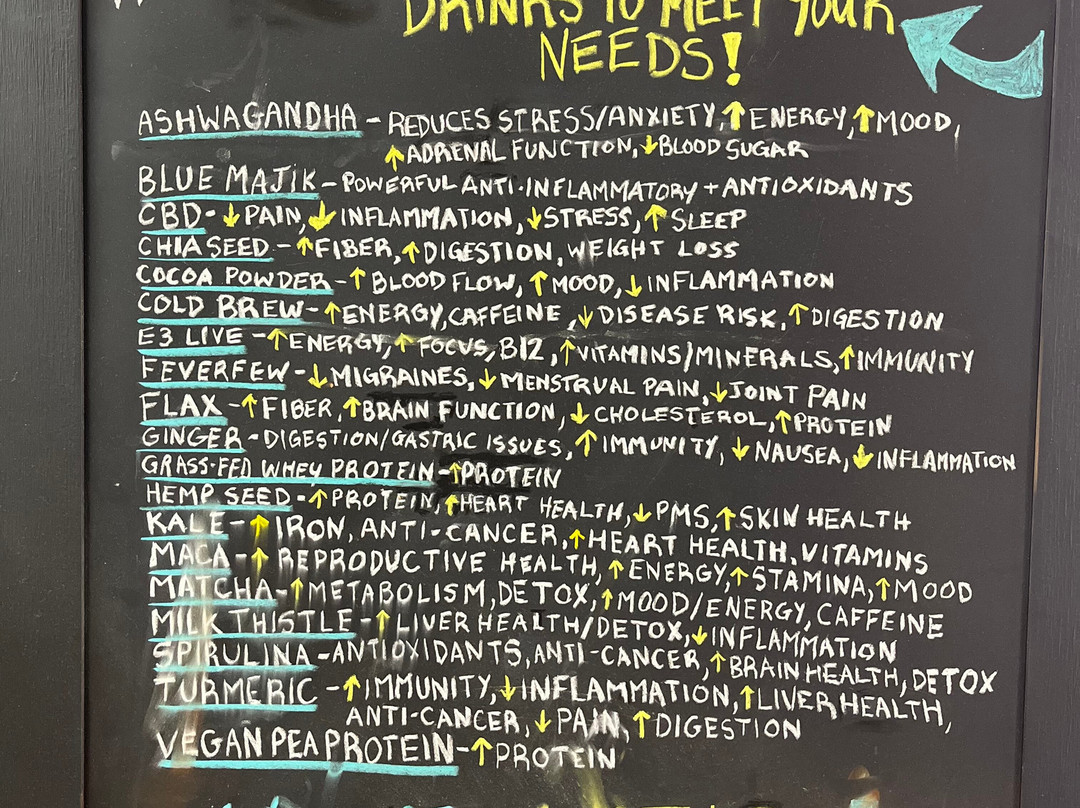 DRINKS TO MEET YOUR
NEEDS!
ASHWAGANDHA - REDUCES STRESS/ANXIETY, ↑ ENERGY, ↑ MOOD,
↑ ADRENAL FUNCTION, ↓ BLOOD SUGAR
BLUE MAJIK - POWERFUL ANTI-INFLAMMATORY + ANTIOXIDANTS
CBD - ↓ PAIN, ↓ INFLAMMATION, ↓ STRESS, ↑ SLEEP
CHIA SEED - ↑ FIBER, ↑ DIGESTION, WEIGHT LOSS
COCOA POWDER - ↑ BLOOD FLOW, ↑ MOOD, ↓ INFLAMMATION
COLD BREW - ↑ ENERGY, CAFFEINE, ↓ DISEASE RISK, ↑ DIGESTION
E3 LIVE - ↑ ENERGY, ↑ FOCUS, B12, ↑ VITAMINS/MINERALS, ↑ IMMUNITY
FEVERFEW - ↓ MIGRAINES, ↓ MENSTRUAL PAIN, ↓ JOINT PAIN
FLAX - ↑ FIBER, ↑ BRAIN FUNCTION, ↓ CHOLESTEROL, ↑ PROTEIN
GINGER - DIGESTION/GASTRIC ISSUES, ↑ IMMUNITY, ↓ NAUSEA, ↓ INFLAMMATION
GRASS-FED WHEY PROTEIN - ↑ PROTEIN
HEMP SEED - ↑ PROTEIN, ↑ HEART HEALTH, ↓ PMS, ↑ SKIN HEALTH
KALE - ↑ IRON, ANTI-CANCER, ↑ HEART HEALTH, VITAMINS
MACA - ↑ REPRODUCTIVE HEALTH, ↑ ENERGY, ↑ STAMINA, ↑ MOOD
MATCHA - ↑ METABOLISM, DETOX, ↑ MOOD/ENERGY, CAFFEINE
MILK THISTLE - ↑ LIVER HEALTH/DETOX, ↓ INFLAMMATION
SPIRULINA - ANTIOXIDANTS, ANTI-CANCER, ↑ BRAIN HEALTH, DETOX
TURMERIC - ↑ IMMUNITY, ↓ INFLAMMATION, ↑ LIVER HEALTH,
ANTI-CANCER, ↓ PAIN, ↑ DIGESTION
VEGAN PEA PROTEIN - ↑ PROTEIN